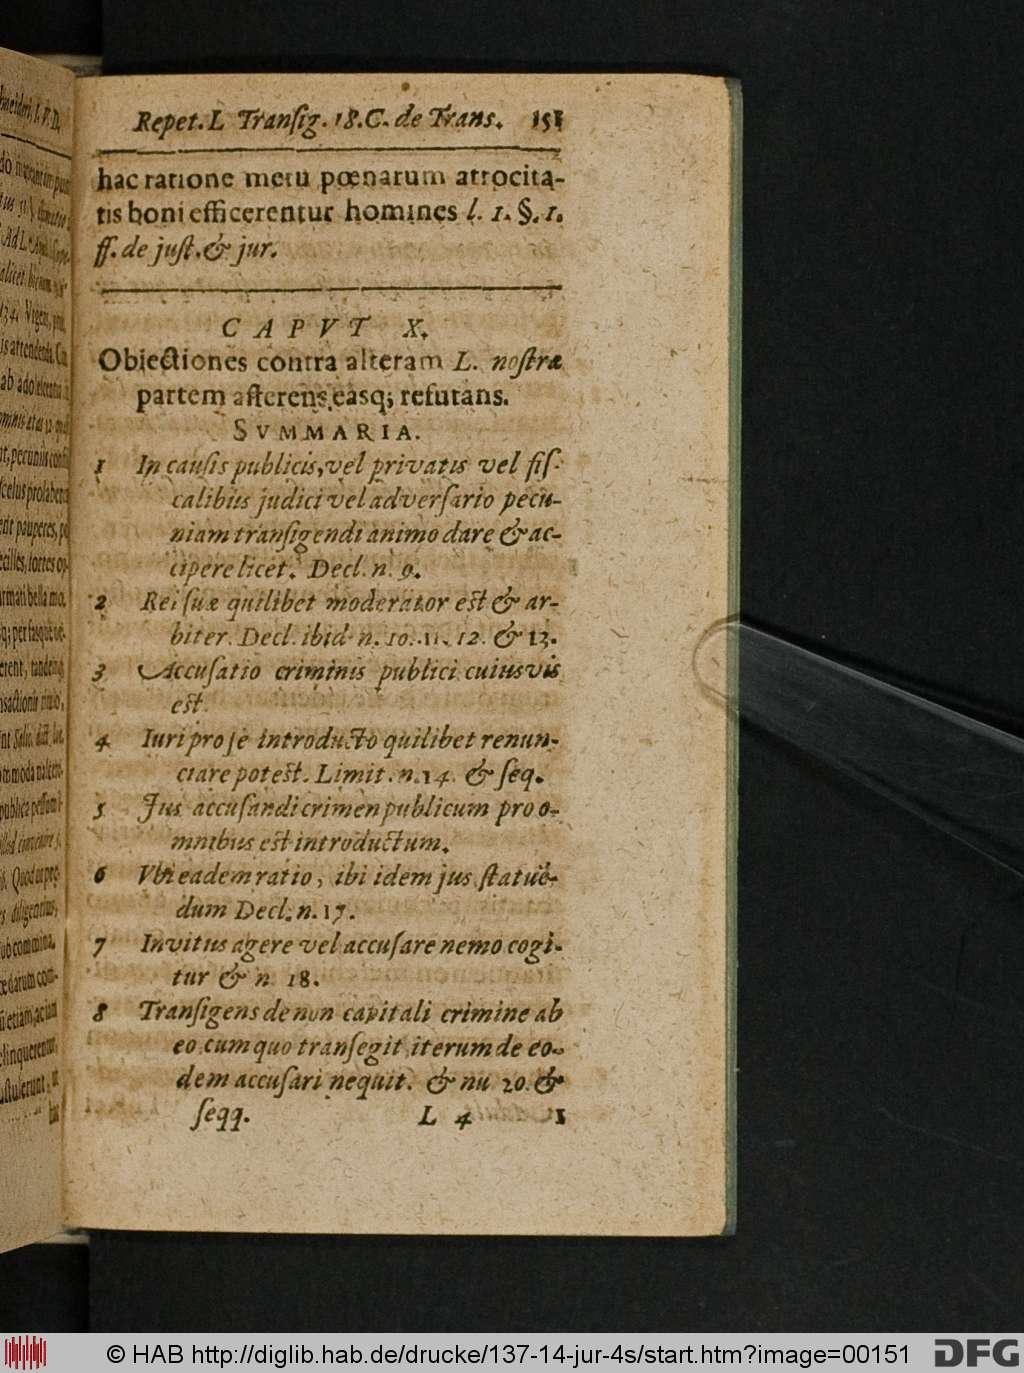 Repet. L Transig. 18. C. de Trans. 151
hac ratione metu pœnarum atrocita-
tis boni efficerentur homines l. 1. §. 1.
ff. de just. & jur.
CAPVT X.
Obiectiones contra alteram L. nostræ
partem asserens, easq; refutans.
SVMMARIA.
1 In causis publicis, vel privatis vel fis-
calibus judici vel adversario pecu-
niam transigendi animo dare & ac-
cipere licet. Decl. n. 9.
2 Rei suæ quilibet moderator est & ar-
biter. Decl. ibid. n. 10. 11. 12. & 13.
3 Accusatio criminis publici cuiusvis
est.
4 Iuri pro se introducto quilibet renun-
ciare potest. Limit. n. 14. & seq.
5 Jus accusandi crimen publicum pro o-
mnibus est introductum.
6 Vbi eadem ratio, ibi idem jus statuē-
dum Decl. n. 17.
7 Invitus agere vel accusare nemo cogi-
tur & n. 18.
8 Transigens de non capitali crimine ab
eo, cum quo transegit, iterum de eo-
dem accusari nequit. & nu 20. &
seqq. L 4 1
© HAB http://diglib.hab.de/drucke/137-14-jur-4s/start.htm?image=00151
DFG